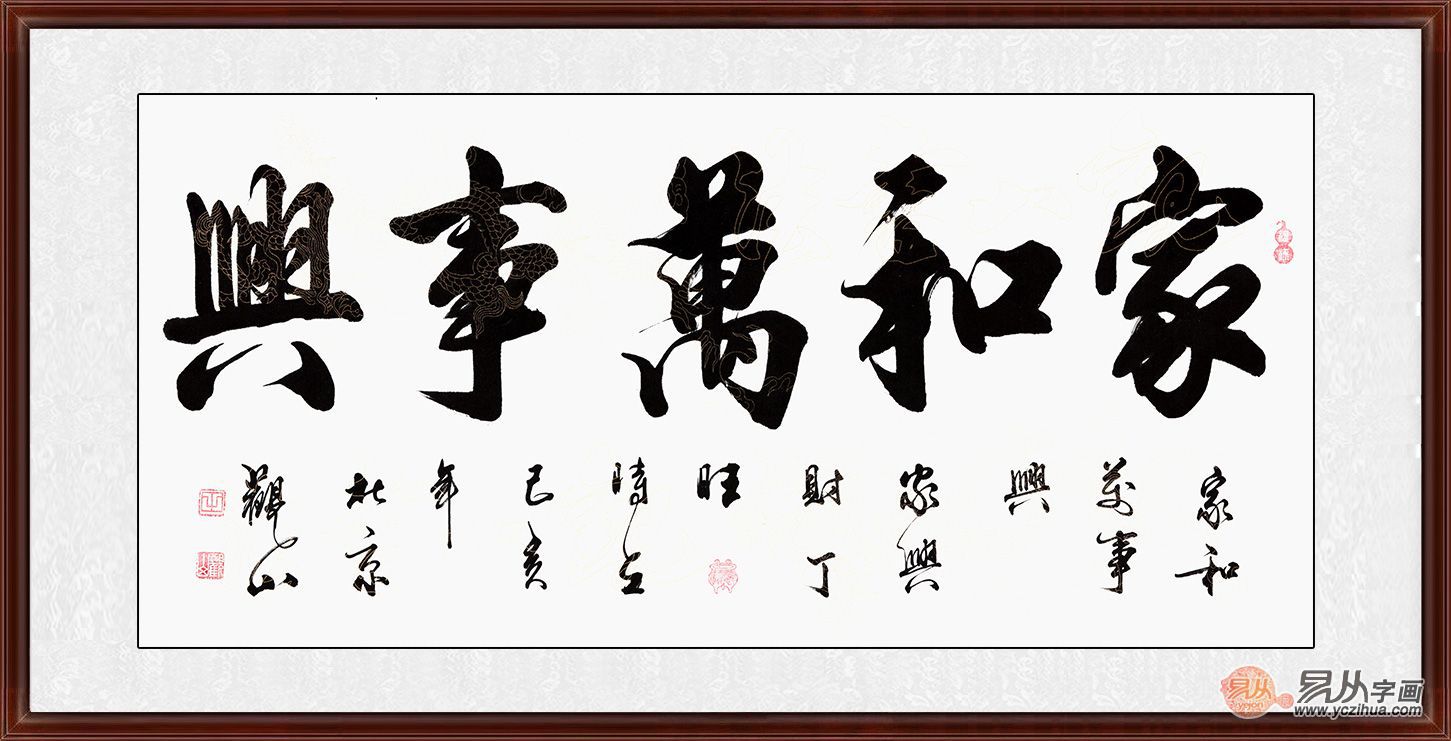 家和萬事興
家和
萬事
興
家興
財丁
旺
時在
己亥
年
北京
觀山
易从
易从字画
www.yczihua.com